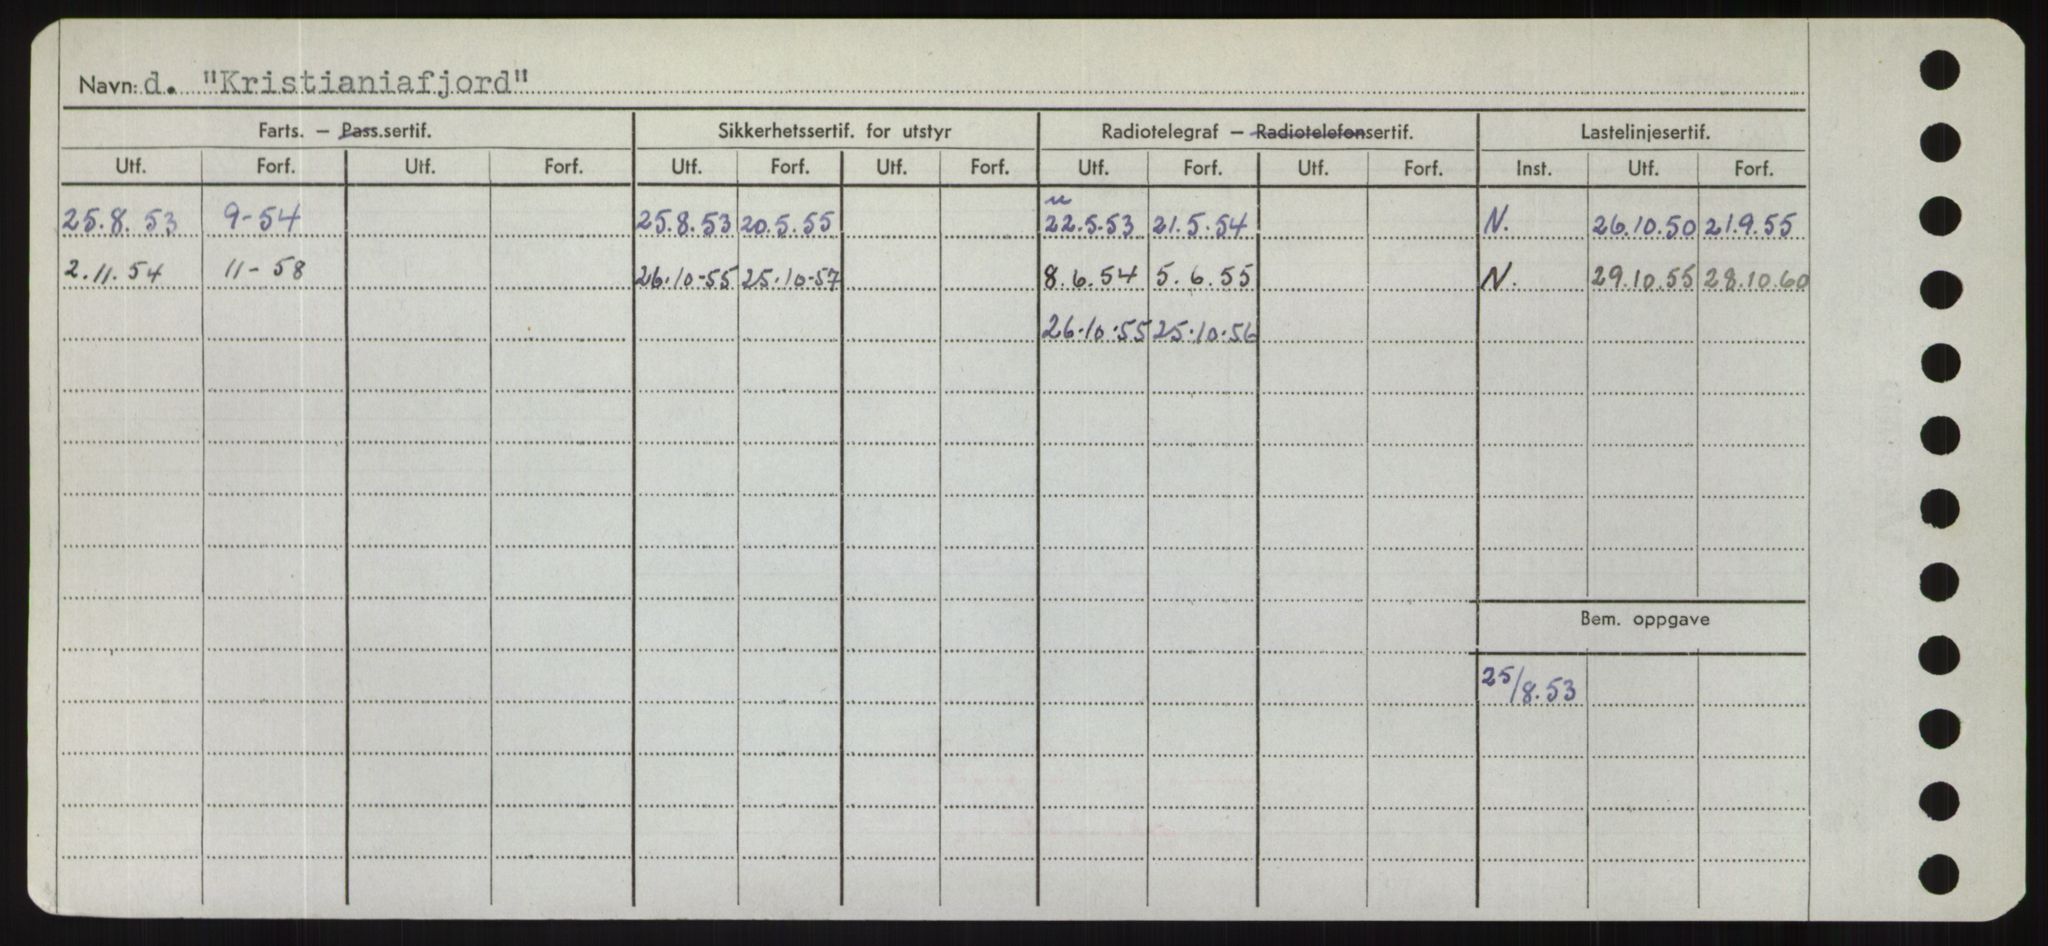 Navn: d. "Kristianiafjord"
Farts. – Pass.sertif. Sikkerhetssertif. for utstyr Radiotelegraf – Radiotelefonsertif. Lastelinjesertif.
Utf. Forf. Utf. Forf. Utf. Forf. Utf. Forf. Utf. Forf. Utf. Forf. Inst. Utf. Forf.
25.8.53 9-54 25.8.53 20.5.55 22.5.53 21.5.54 N. 26.10.50 21.9.55
2.11.54 11-58 26.10-55 25.10-57 8.6.54 5.6.55 N. 29.10.55 28.10.60
26.10.55 25.10.56
Bem. oppgave
25/8.53